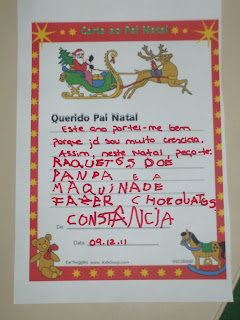 Carta ao Pai Natal
Querido Pai Natal
Este ano portei-me bem
porque já sou muito crescida.
Assim, neste Natal, peço-te:
RAQUETOS DOE
PANDA E A
MAQUINADE
FAZER CHOCOLATES
CONSTÂNCIA
De:
Data: 09.12.11